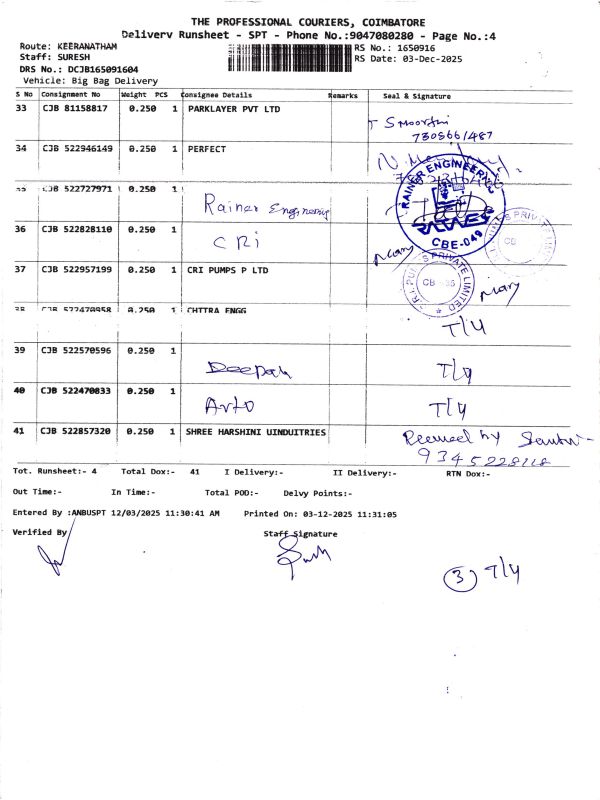 THE PROFESSIONAL COURIERS, COIMBATORE
Delivery Runsheet - SPT - Phone No.:9047080280 - Page No.:4
Route: KEERANATHAM RS No.: 1650916
Staff: SURESH RS Date: 03-Dec-2025
DRS No.: DCJB165091604
Vehicle: Big Bag Delivery
S No Consignment No Weight PCS Consignee Details Remarks Seal & Signature
33 CJB 81158817 0.250 1 PARKLAYER PVT LTD
T S Moorthi
7305661487
34 CJB 522946149 0.250 1 PERFECT
35 CJB 522727971 0.250 1
Rainer Engineering
RAINER ENGINEERING
CBE-049
36 CJB 522828110 0.250 1
CRi
37 CJB 522957199 0.250 1 CRI PUMPS P LTD
C.R.I. PUMPS PRIVATE LIMITED
38 CJB 522470958 0.250 1 CHITRA ENGG
T/4
39 CJB 522570596 0.250 1
Deepak T/4
40 CJB 522470833 0.250 1
Arto T/4
41 CJB 522857320 0.250 1 SHREE HARSHINI UINDUITRIES
Received by
9345228118
Tot. Runsheet:- 4 Total Dox:- 41 I Delivery:- II Delivery:- RTN Dox:-
Out Time:- In Time:- Total POD:- Delvy Points:-
Entered By :ANBUSPT 12/03/2025 11:30:41 AM Printed On: 03-12-2025 11:31:05
Verified By Staff Signature
3 T/4